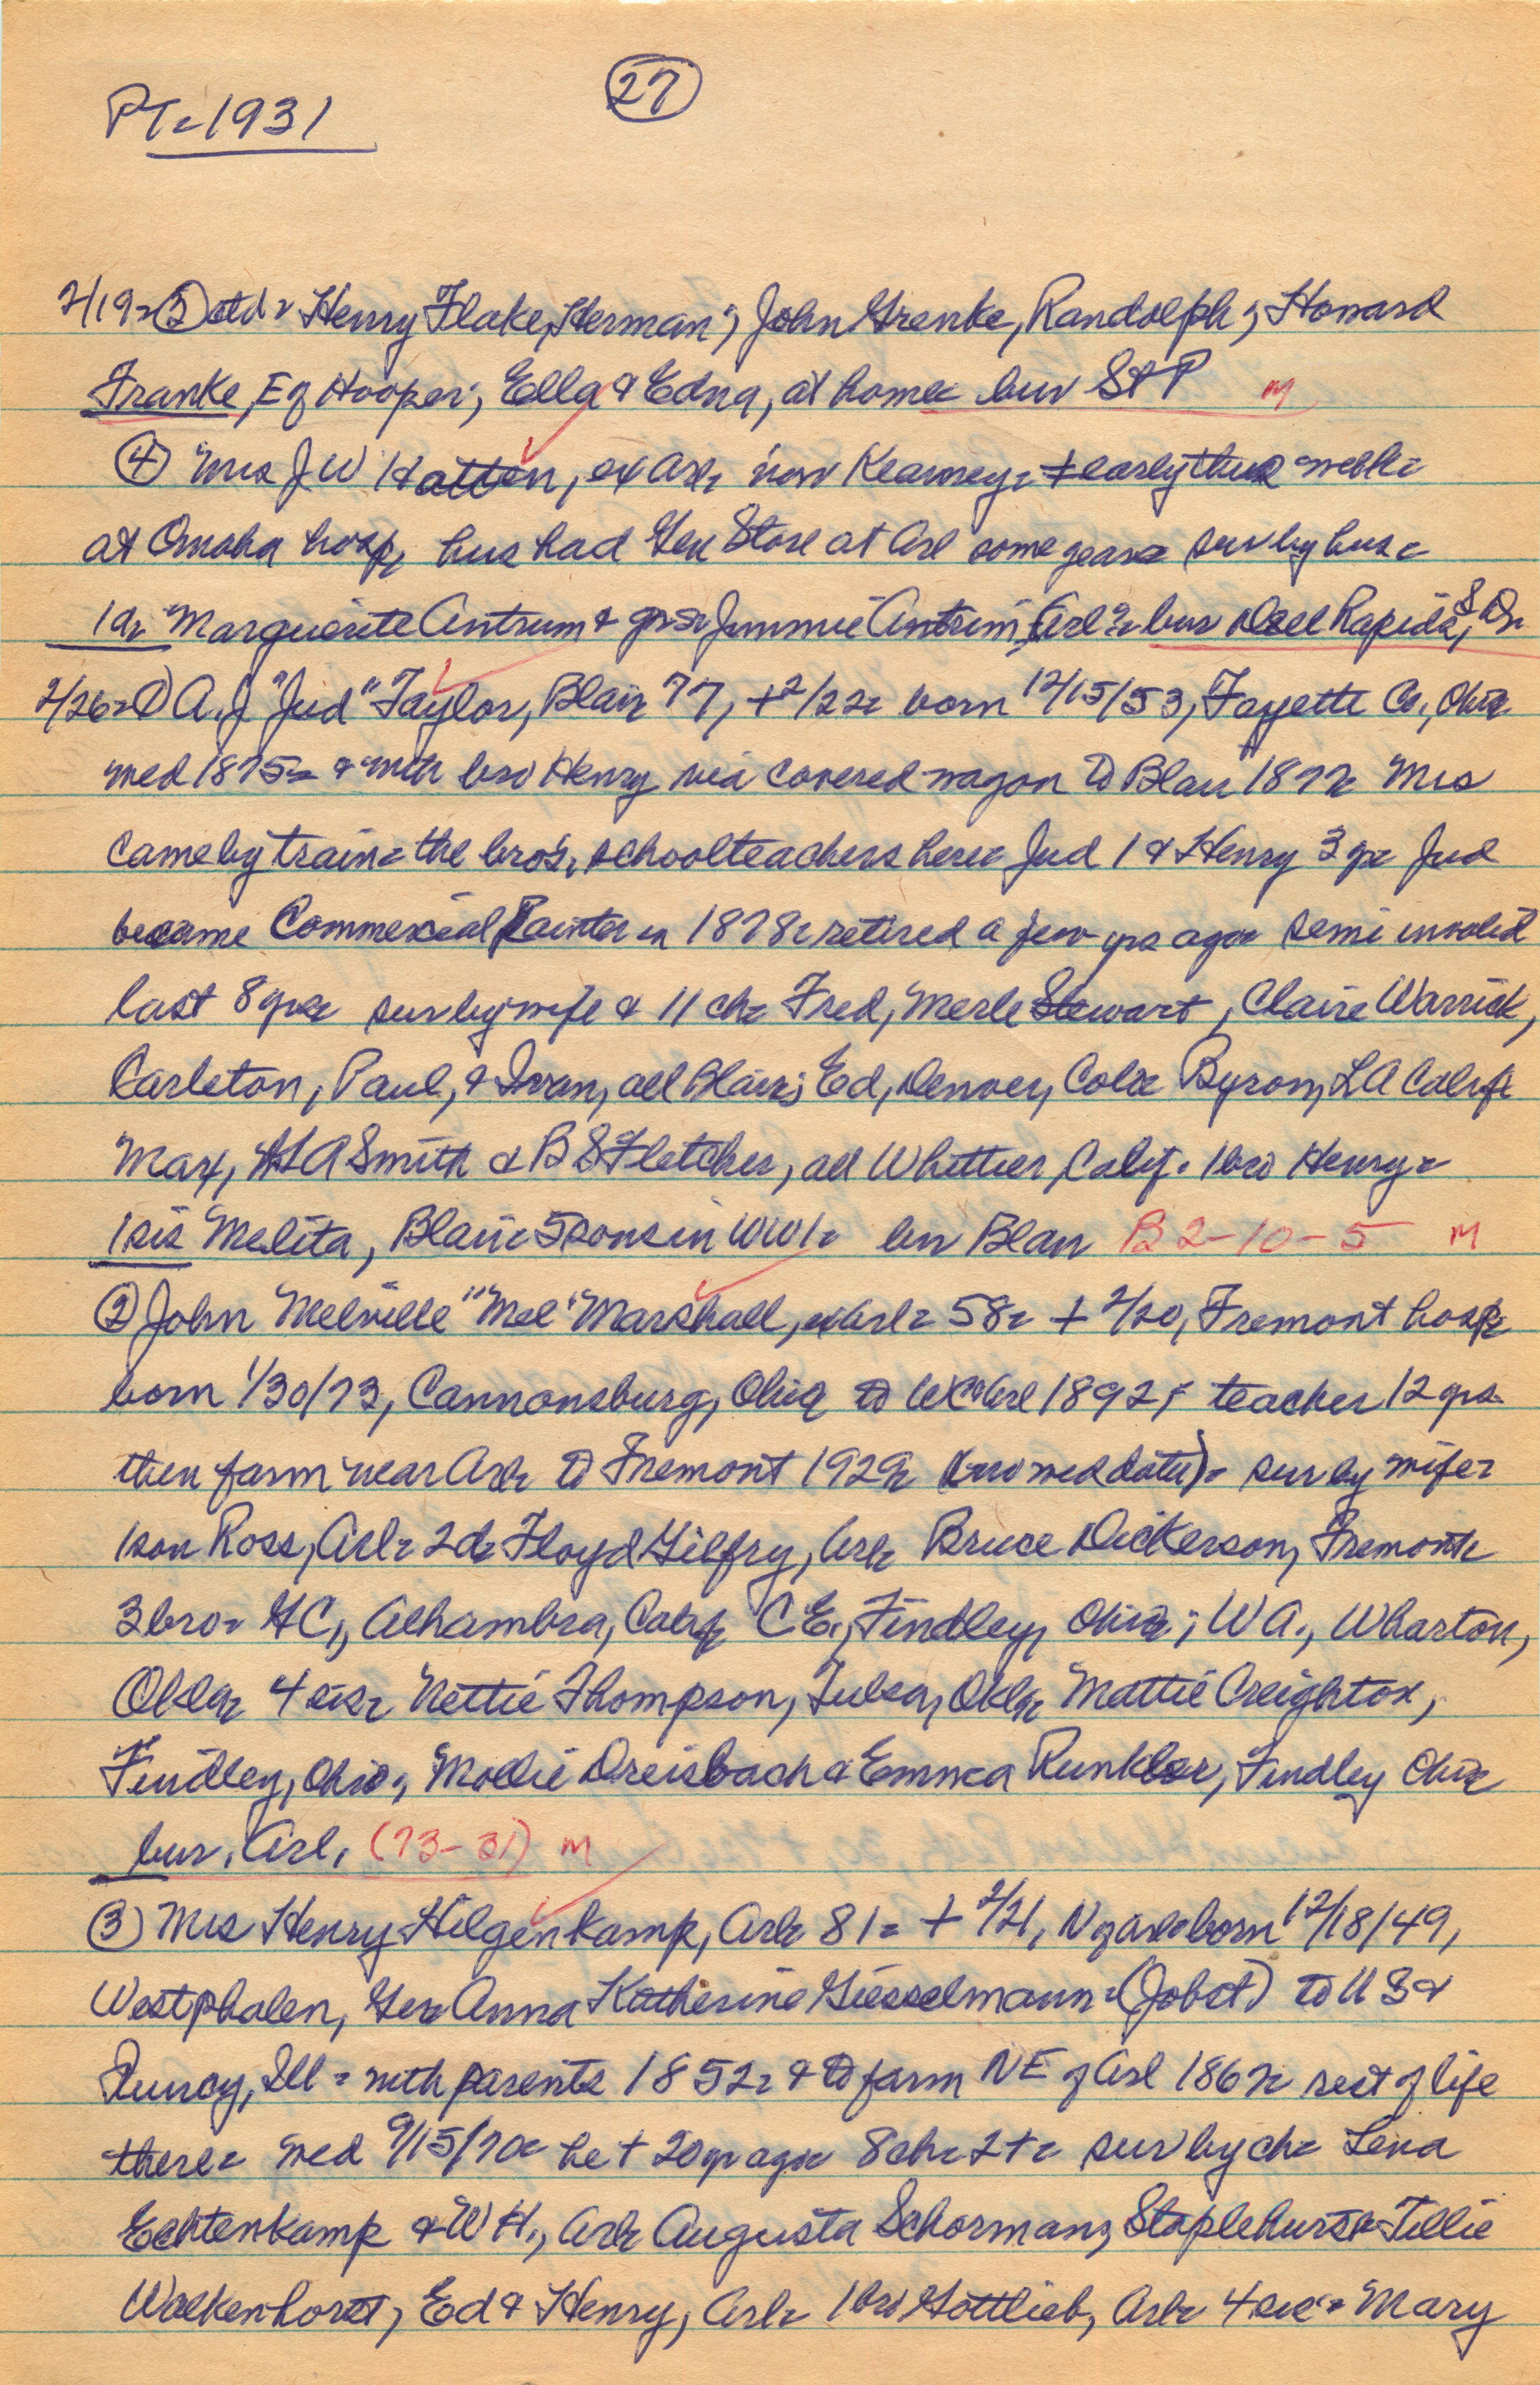 PT - 1931
27
2/19 - (3) ctd - Henry Flake, Herman; John Grenke, Randolph; Howard
Franke, E of Hooper; Ella & Edna, at home - bur St P M
(4) Mrs J W Hatten, ex Arl - now Kearney - + early this week -
at Omaha hosp - hus had Gen Store at Arl some years - sur by hus -
1 d - Marguerite Antrum & gr s - Jimmie Antrim, Arl - bur Dell Rapids, S D -
2/26 - (1) A. J "Jud" Taylor, Blair - 77, + 2/22 - born 12/15/53, Fayette Co., Ohio -
wed 1875 - & with bro Henry via covered wagon to Blair 1877 - Mrs
came by train - the bros, schoolteachers here - Jud 1 & Henry 3 yr - Jud
became Commercial Painter in 1878 - retired a few yrs ago - semi invalid
last 8 yrs - sur by wife & 11 ch - Fred, Merle Stewart, Claire Warrick,
Carleton, Paul, & Ivan, all Blair; Ed, Denver, Colo - Byron, LA Calif -
Max, H A Smith & B S Fletcher, all Whittier, Calif. 1 bro Henry -
1 sis Melita, Blair - 5 sons in WW1 - bur Blair B 2-10-5 M
(2) John Melville "Mel" Marshall, ex Arl - 58 - + 2/20, Fremont hosp -
born 1/30/73, Cannonsburg, Ohio - to WC Arl 1892; teacher 12 yrs -
then farm near Arl - to Fremont 1929 - (no wed date) - sur by wife -
1 son Ross, Arl - 2 d - Floyd Gilfry, Arl - Bruce Dickerson, Fremont -
3 bro - G C, Alhambra, Calif - C E., Findley, Ohio; W A., Wharton,
Okla - 4 sis - Nettie Thompson, Tulsa, Okla - Mattie Creighton,
Findley, Ohio, Mollie Dreisbach & Emma Runkler, Findley Ohio -
bur. Arl. (73-31) M
(3) Mrs Henry Hilgenkamp, Arl - 81 - + 2/21, N of Arl - born 12/18/49,
Westphalen, Ger - Anna Katherine Giesselmann - (Jobst) to U S &
Quincy, Ill - with parents 1852 - & to farm NE of Arl 1867 - rest of life
there - wed 9/15/70 - he + 20 yr ago - 8 ch - 2 + - sur by ch - Lena
Echtenkamp & W H., Arl - Augusta Schorman, Staplehurst - Tillie
Walkenhorst, Ed & Henry, Arl - 1 bro Gottlieb, Arl - 4 sis - Mary